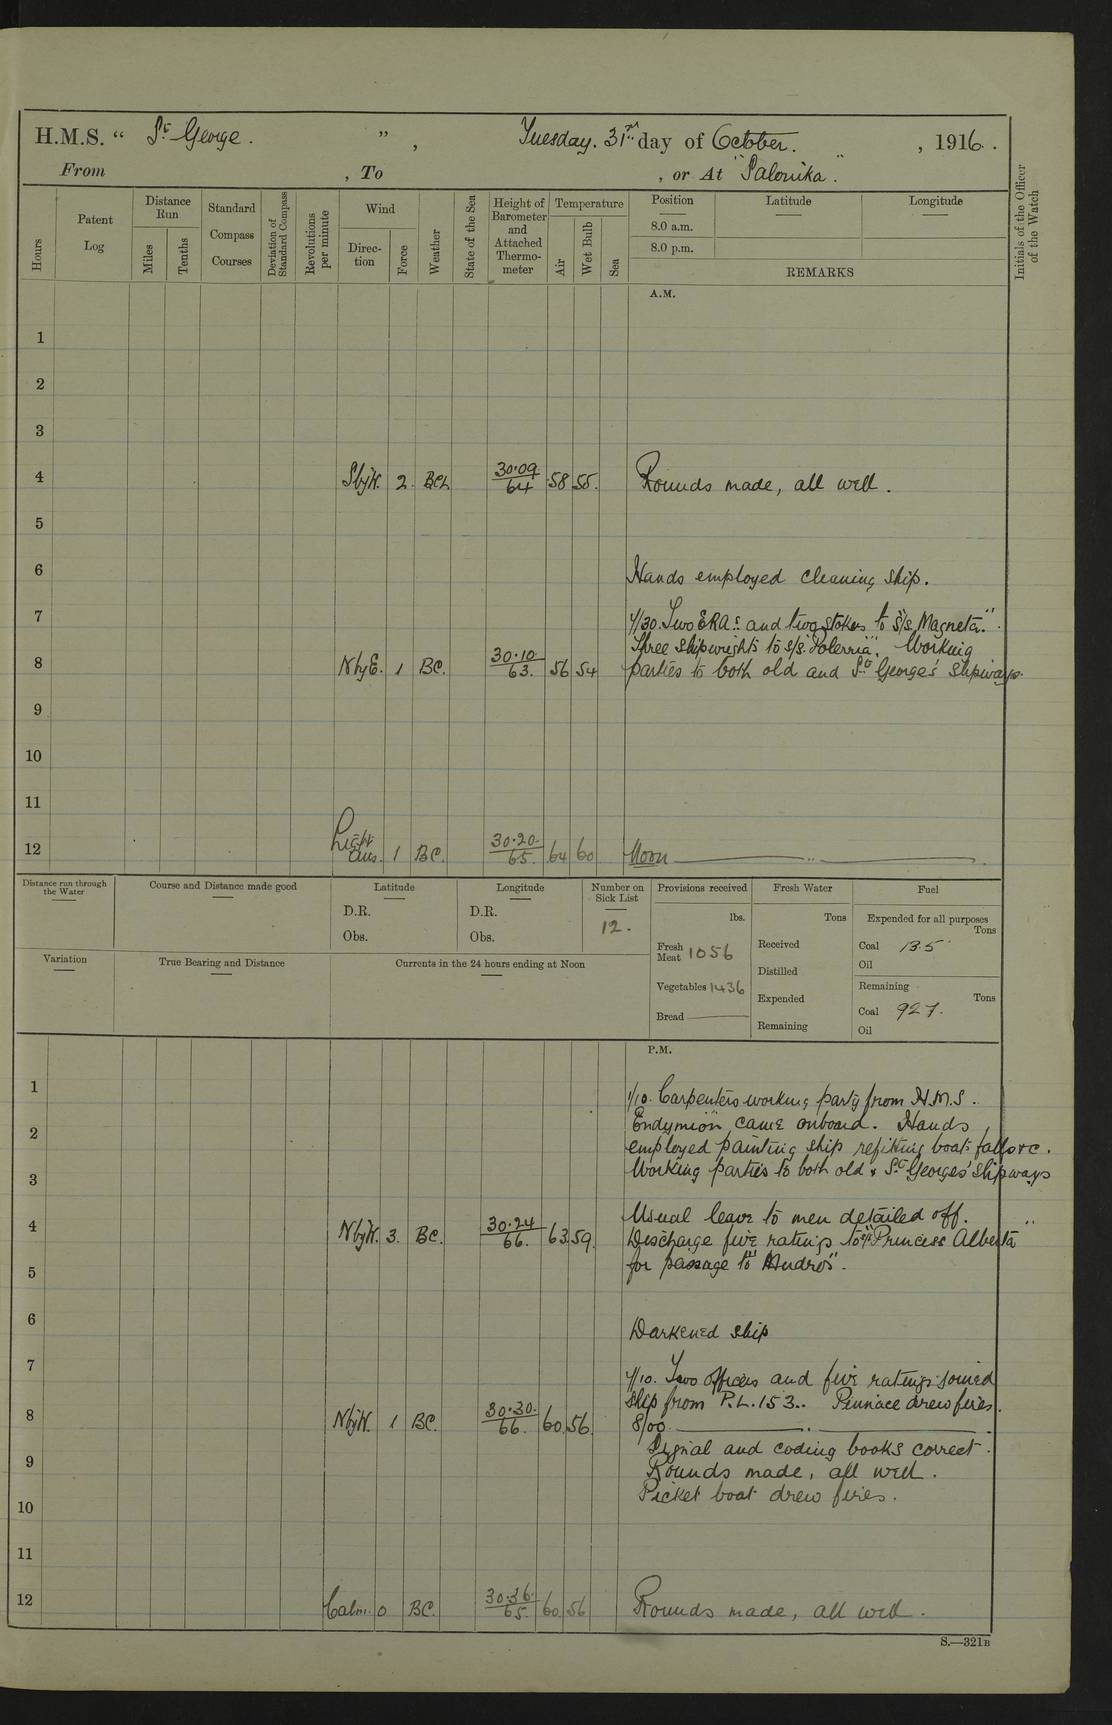 H.M.S. " St George. ", Tuesday. 31st day of October. , 1916.
From , To , or At "Salonika".
Hours
Patent Log
Distance Run
Miles
Tenths
Standard Compass Courses
Deviation of Standard Compass
Revolutions per minute
Wind
Direction
Force
Weather
State of the Sea
Height of Barometer and Attached Thermometer
Temperature
Air
Wet Bulb
Sea
Position
8.0 a.m.
8.0 p.m.
Latitude
Longitude
REMARKS
Initials of the Officer of the Watch
A.M.
1
2
3
4 SbyW. 2. 30·09 64 58 55. Rounds made, all well.
5
6 Hands employed cleaning ship.
7 7/30. Two ERAs and two stokers to S/S "Magneta".
Three shipwrights to S/S. Working
8 NbyE. 1 BC. 30·10 63. 56 54 parties to both old and St George's slipways.
9
10
11
12 Light Airs. 1 BC. 30·20 65. 64 60 Noon
Distance run through the Water
Course and Distance made good
Latitude
D.R.
Obs.
Longitude
D.R.
Obs.
Number on Sick List
12.
Provisions received
lbs.
Fresh Meat 1056
Vegetables 1436
Bread
Fresh Water
Tons
Received
Distilled
Expended
Remaining
Fuel
Expended for all purposes
Tons
Coal 13.5
Oil
Remaining
Tons
Coal 927.
Oil
Variation
True Bearing and Distance
Currents in the 24 hours ending at Noon
P.M.
1 1/10. Carpenters working party from H.M.S.
2 "Endymion" came onboard. Hands
employed painting ship refitting boats falls &c.
3 Working parties to both old & St Georges' slipways
4 NbyW. 3. BC. 30·24 66. 63 59. Usual leave to men detailed off.
Discharge five ratings to S/S "Princess Alberta"
5 for passage to "Mudros".
6 Darkened ship
7 7/10. Two officers and five ratings joined
ship from P.L.153.. Pinnace drew fires.
8 NbyW. 1 BC. 30·30. 66. 60. 56. 8/00.
Signal and coding books correct.
9 Rounds made, all well.
10 Picket boat drew fires.
11
12 Calm. 0 BC. 30·36. 65. 60 56 Rounds made, all well.
S.—321B